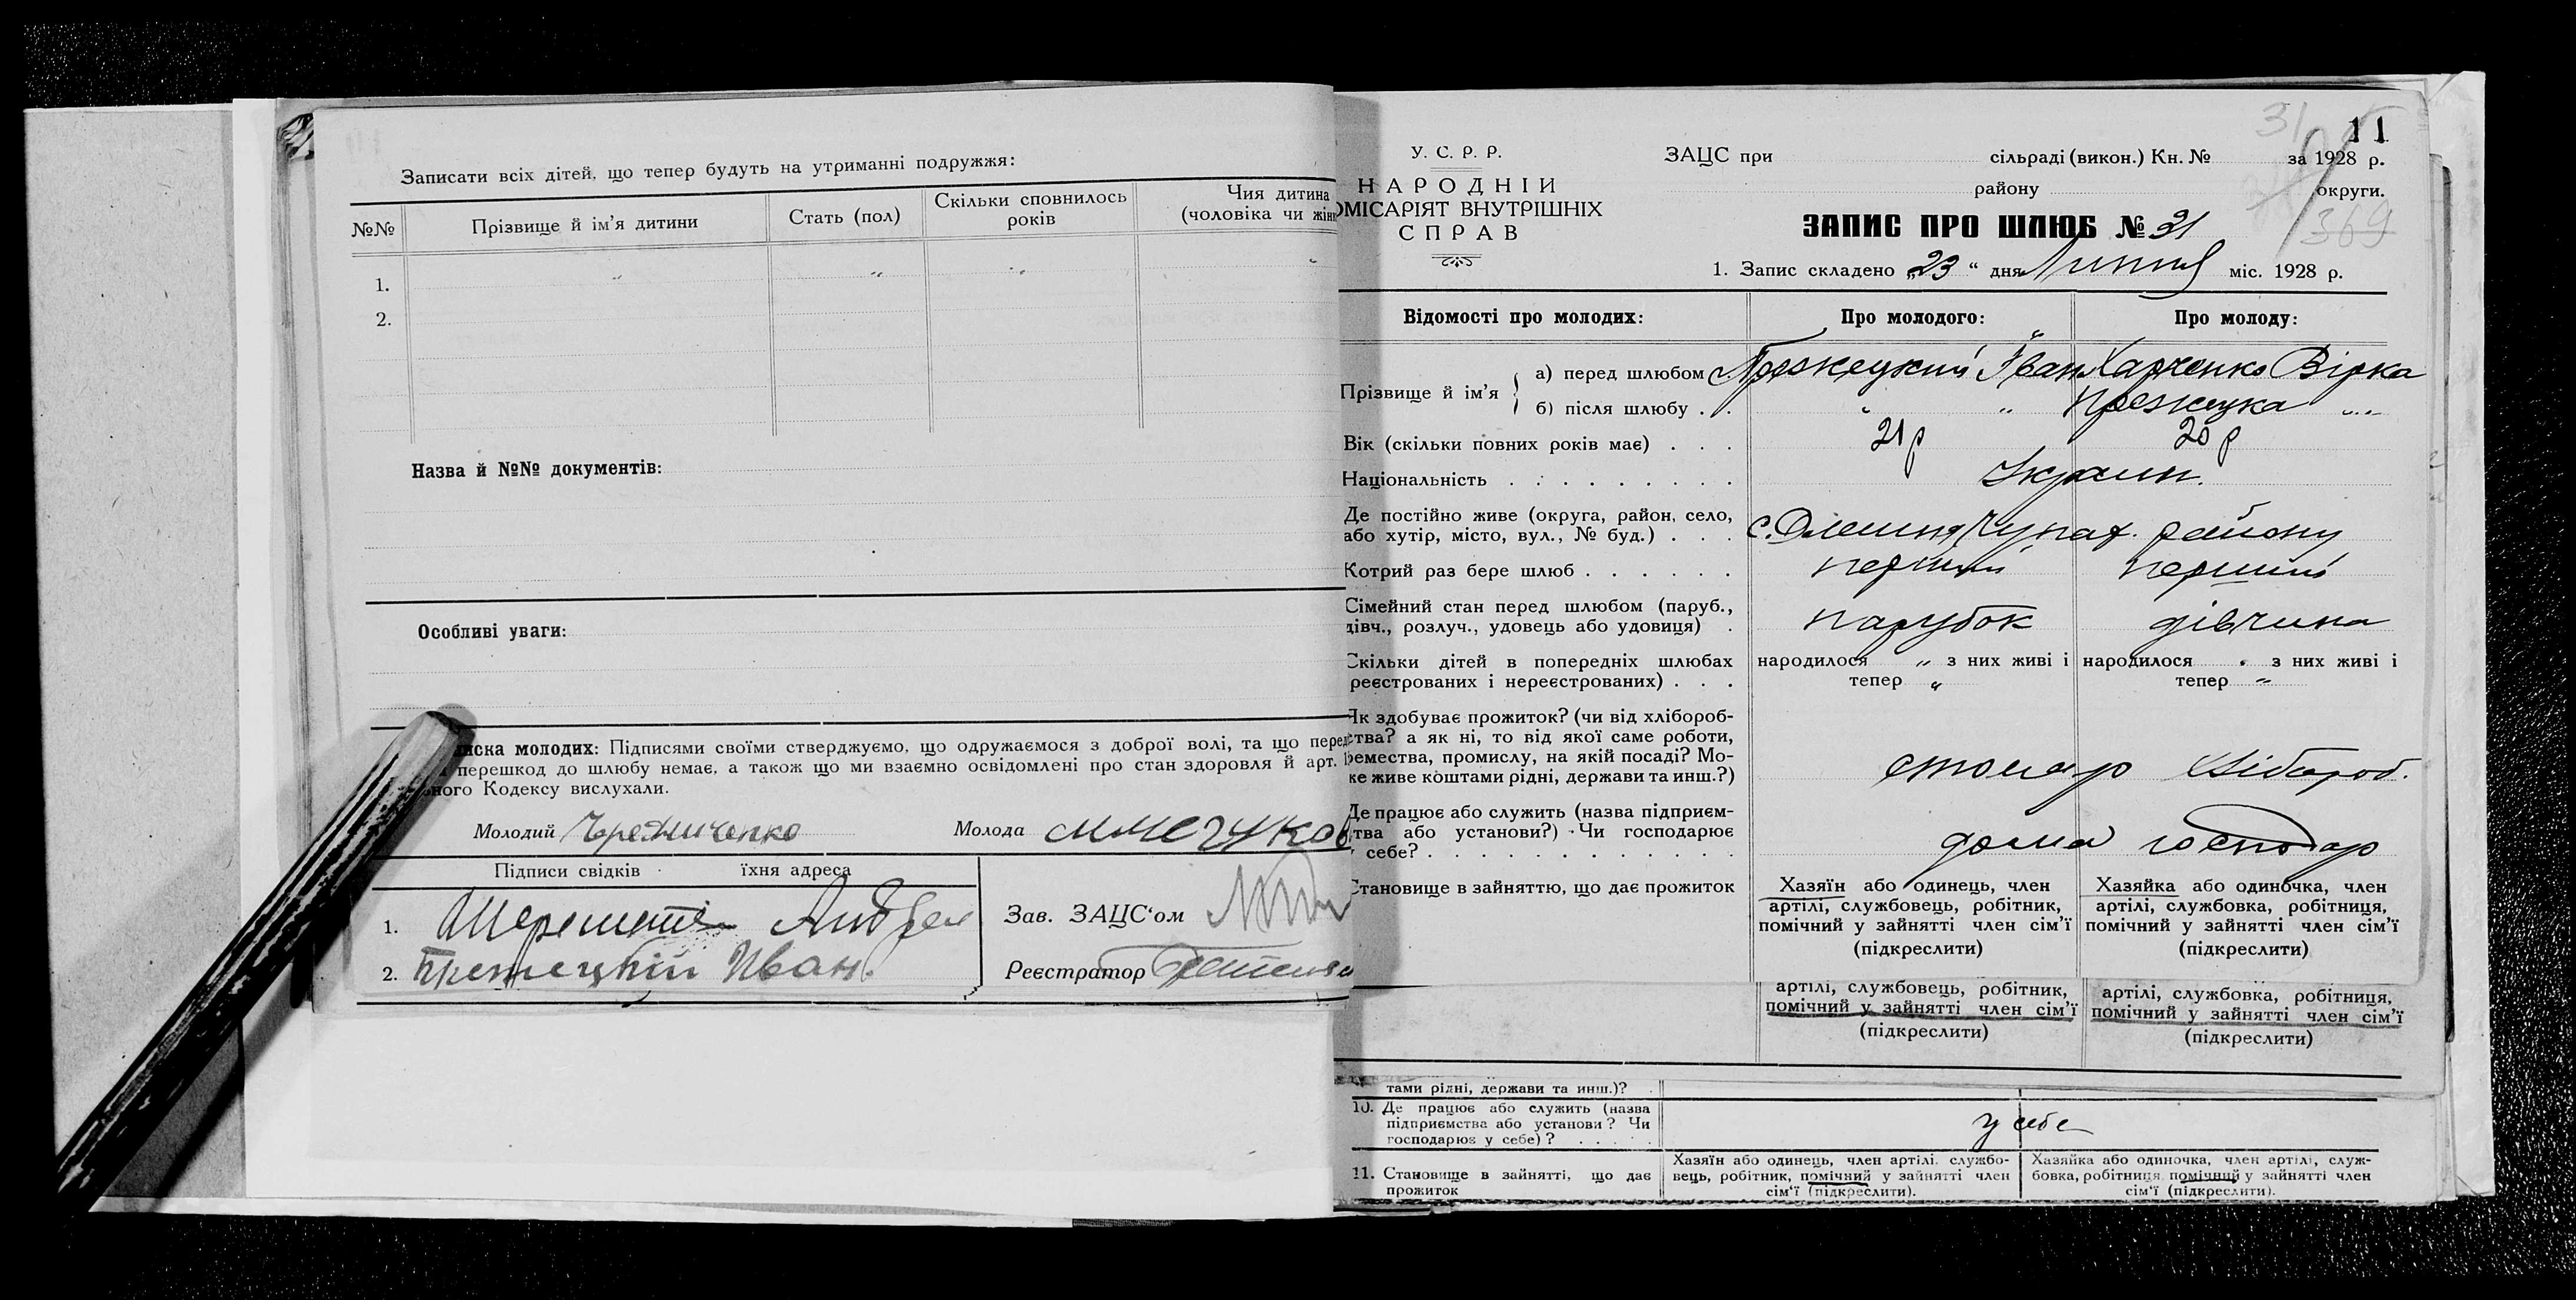 Записати всіх дітей, що тепер будуть на утриманні подружжя:
№№ Прізвище й ім'я дитини Стать (пол) Скільки сповнилось років Чия дитина (чоловіка чи жін
1. " " " "
2.
Назва й №№ документів:
Особливі уваги:
иска молодих: Підписями своїми стверджуємо, що одружаємося з доброї волі, та що перед
перешкод до шлюбу немає, а також що ми взаємно освідомлені про стан здоровля й арт.
ного Кодексу вислухали.
Молодий Чредниченко Молода
Підписи свідків їхня адреса
1. Шеремет Андрей
2. Пржецкий Иван.
Зав. ЗАЦС'ом
Реєстратор
31
11
369
У. С. Р. Р.
НАРОДНІЙ
ОМІСАРІЯТ ВНУТРІШНІХ
СПРАВ
ЗАЦС при сільраді (викон.) Кн. № за 1928 р.
району округи.
ЗАПИС ПРО ШЛЮБ № 31
1. Запис складено „23" дня Липня міс. 1928 р.
Відомості про молодих: Про молодого: Про молоду:
Прізвище й ім'я
а) перед шлюбом Іван Харченко Вірка
б) після шлюбу . . " " "
Вік (скільки повних років має) . . . 21 р 20 р
Національність . . . . . . . . . Украин.
Де постійно живе (округа, район, село,
або хутір, місто, вул., № буд.) . . . району
Котрий раз бере шлюб . . . . . . перший перший
Сімейний стан перед шлюбом (паруб.,
дівч., розлуч., удовець або удовиця) . парубок дівчина
Скільки дітей в попередніх шлюбах народилося " з них живі і народилося " з них живі і
реєстрованих і нереєстрованих) . . . тепер " тепер "
Як здобуває прожиток? (чи від хлібороб-
ства? а як ні, то від якої саме роботи,
ремества, промислу, на якій посаді? Мо-
же живе коштами рідні, держави та инш.?) столяр хлібороб.
Де працює або служить (назва підприєм-
тва або установи?) Чи господарює
у себе? . . . . . . . . . . . . дома господар
Становище в зайняттю, що дає прожиток
Хазяїн або одинець, член
артілі, службовець, робітник,
помічний у зайнятті член сім'ї
(підкреслити)
Хазяйка або одиночка, член
артілі, службовка, робітниця,
помічний у зайнятті член сім'ї
(підкреслити)
артілі, службовець, робітник,
помічний у зайнятті член сім'ї
(підкреслити)
артілі, службовка, робітниця,
помічний у зайнятті член сім'ї
(підкреслити)
тами рідні, держави та инш.)?
10. Де працює або служить (назва
підприємства або установи? Чи
господарює у себе)? . . . . . у себе
11. Становище в зайнятті, що дає
прожиток
Хазяїн або одинець, член артілі, службо-
вець, робітник, помічний у зайнятті член
сім'ї (підкреслити).
Хазяйка або одиночка, член артілі, служ-
бовка, робітниця, помічний у зайнятті член
сім'ї (підкреслити).